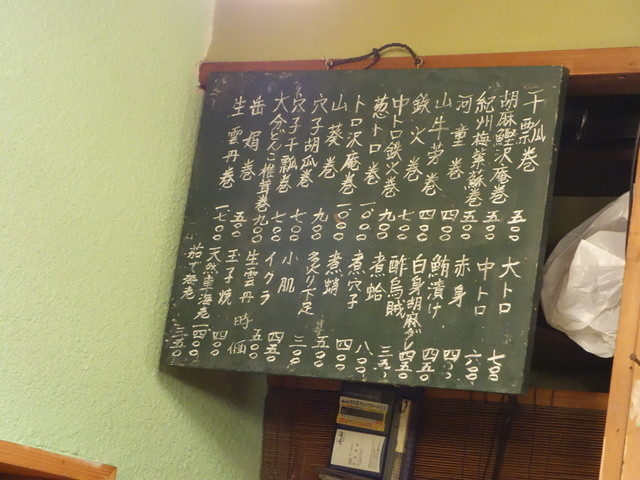 干瓢巻 五〇〇
胡麻鰹沢庵巻 五五〇
紀州梅葉蘇巻 五〇〇
河童巻 四〇〇
山牛蒡巻 四〇〇
鉄火巻 七〇〇
中トロ鉄火巻
葱トロ巻 一、〇〇〇
トロ沢庵巻 一、〇〇〇
山葵巻
穴子胡瓜巻 九〇〇
穴子干瓢巻 七〇〇
大分どんこ椎茸巻 九〇〇
巻 五〇〇
生雲丹巻 一、七〇〇
大トロ 七〇〇
中トロ 六〇〇
赤身 四〇〇
鮪漬け 四五〇
白身胡麻ダレ 四五〇
酢烏賊 三五〇
煮蛤
煮穴子 八〇〇
煮蛸 四〇〇
炙り下足
小肌 三〇〇
イクラ 四五〇
生雲丹 時価
玉子焼
天然車海老 一、四〇〇
茹で海老 三五〇